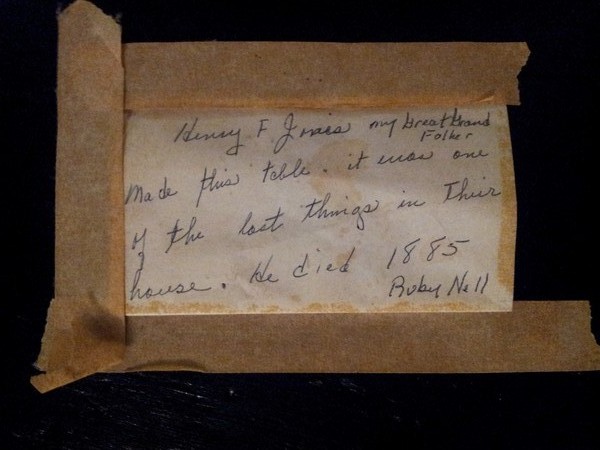 Henry F Jones my Great Grand
Father
Made this table. it was one
of the last things in Their
house. He died 1885
Ruby Nell